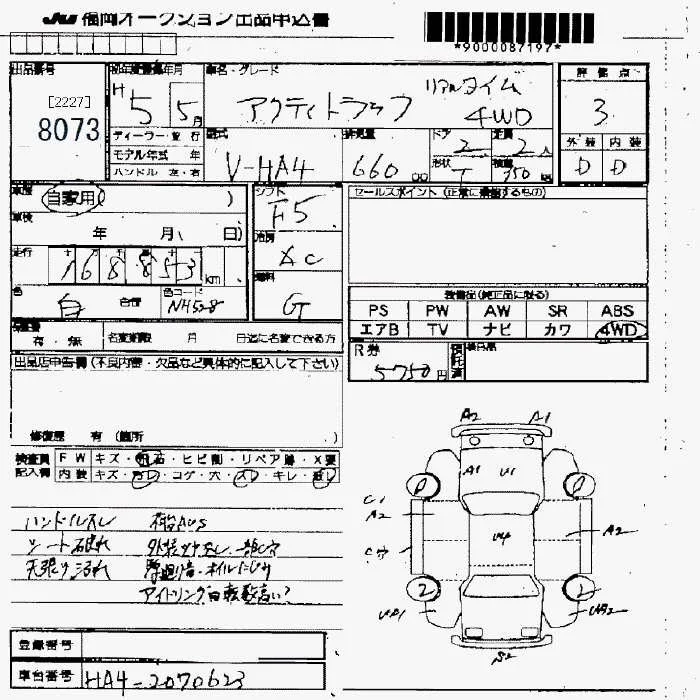 JU 福岡オークション出品申込書
*9000087197*
出品番号
[2227]
8073
初年度登録年月
H5 5月
車名・グレード
アクティトラック リアルタイム 4WD
評価点
3
ディーラー・並行
モデル年式 年
ハンドル 左・右
型式
V-HA4
排気量
660 cc
ドア
2
定員
2人
形状
T
積載
350 kg
外装 内装
D D
車歴 自家用 ( )
車検 年 月( 日)
走行 168853 km
色 白 色コード NH528
シフト
F5
冷房
AC
燃料
G
セールスポイント (正常に機能するもの)
装備品(純正品に限る)
PS PW AW SR ABS
エアB TV ナビ カワ 4WD
有・無 名変期限 月 日迄に名変できる方
R券
5750円
出品店申告欄 (不良内容・欠品など具体的に記入して下さい)
修復歴 有 (箇所 )
検査員記入欄
FW キズ・飛石・ヒビ割・リペア跡・X要
内装 キズ・コゲ・穴・スレ・キレ
ハンドルスレ
シート破れ
天張り汚れ
アイドリング回転数高い?
A2 A1
A1 U1
C1
A2
U4
A2
2 2
S2
登録番号
車台番号 HA4-2070623